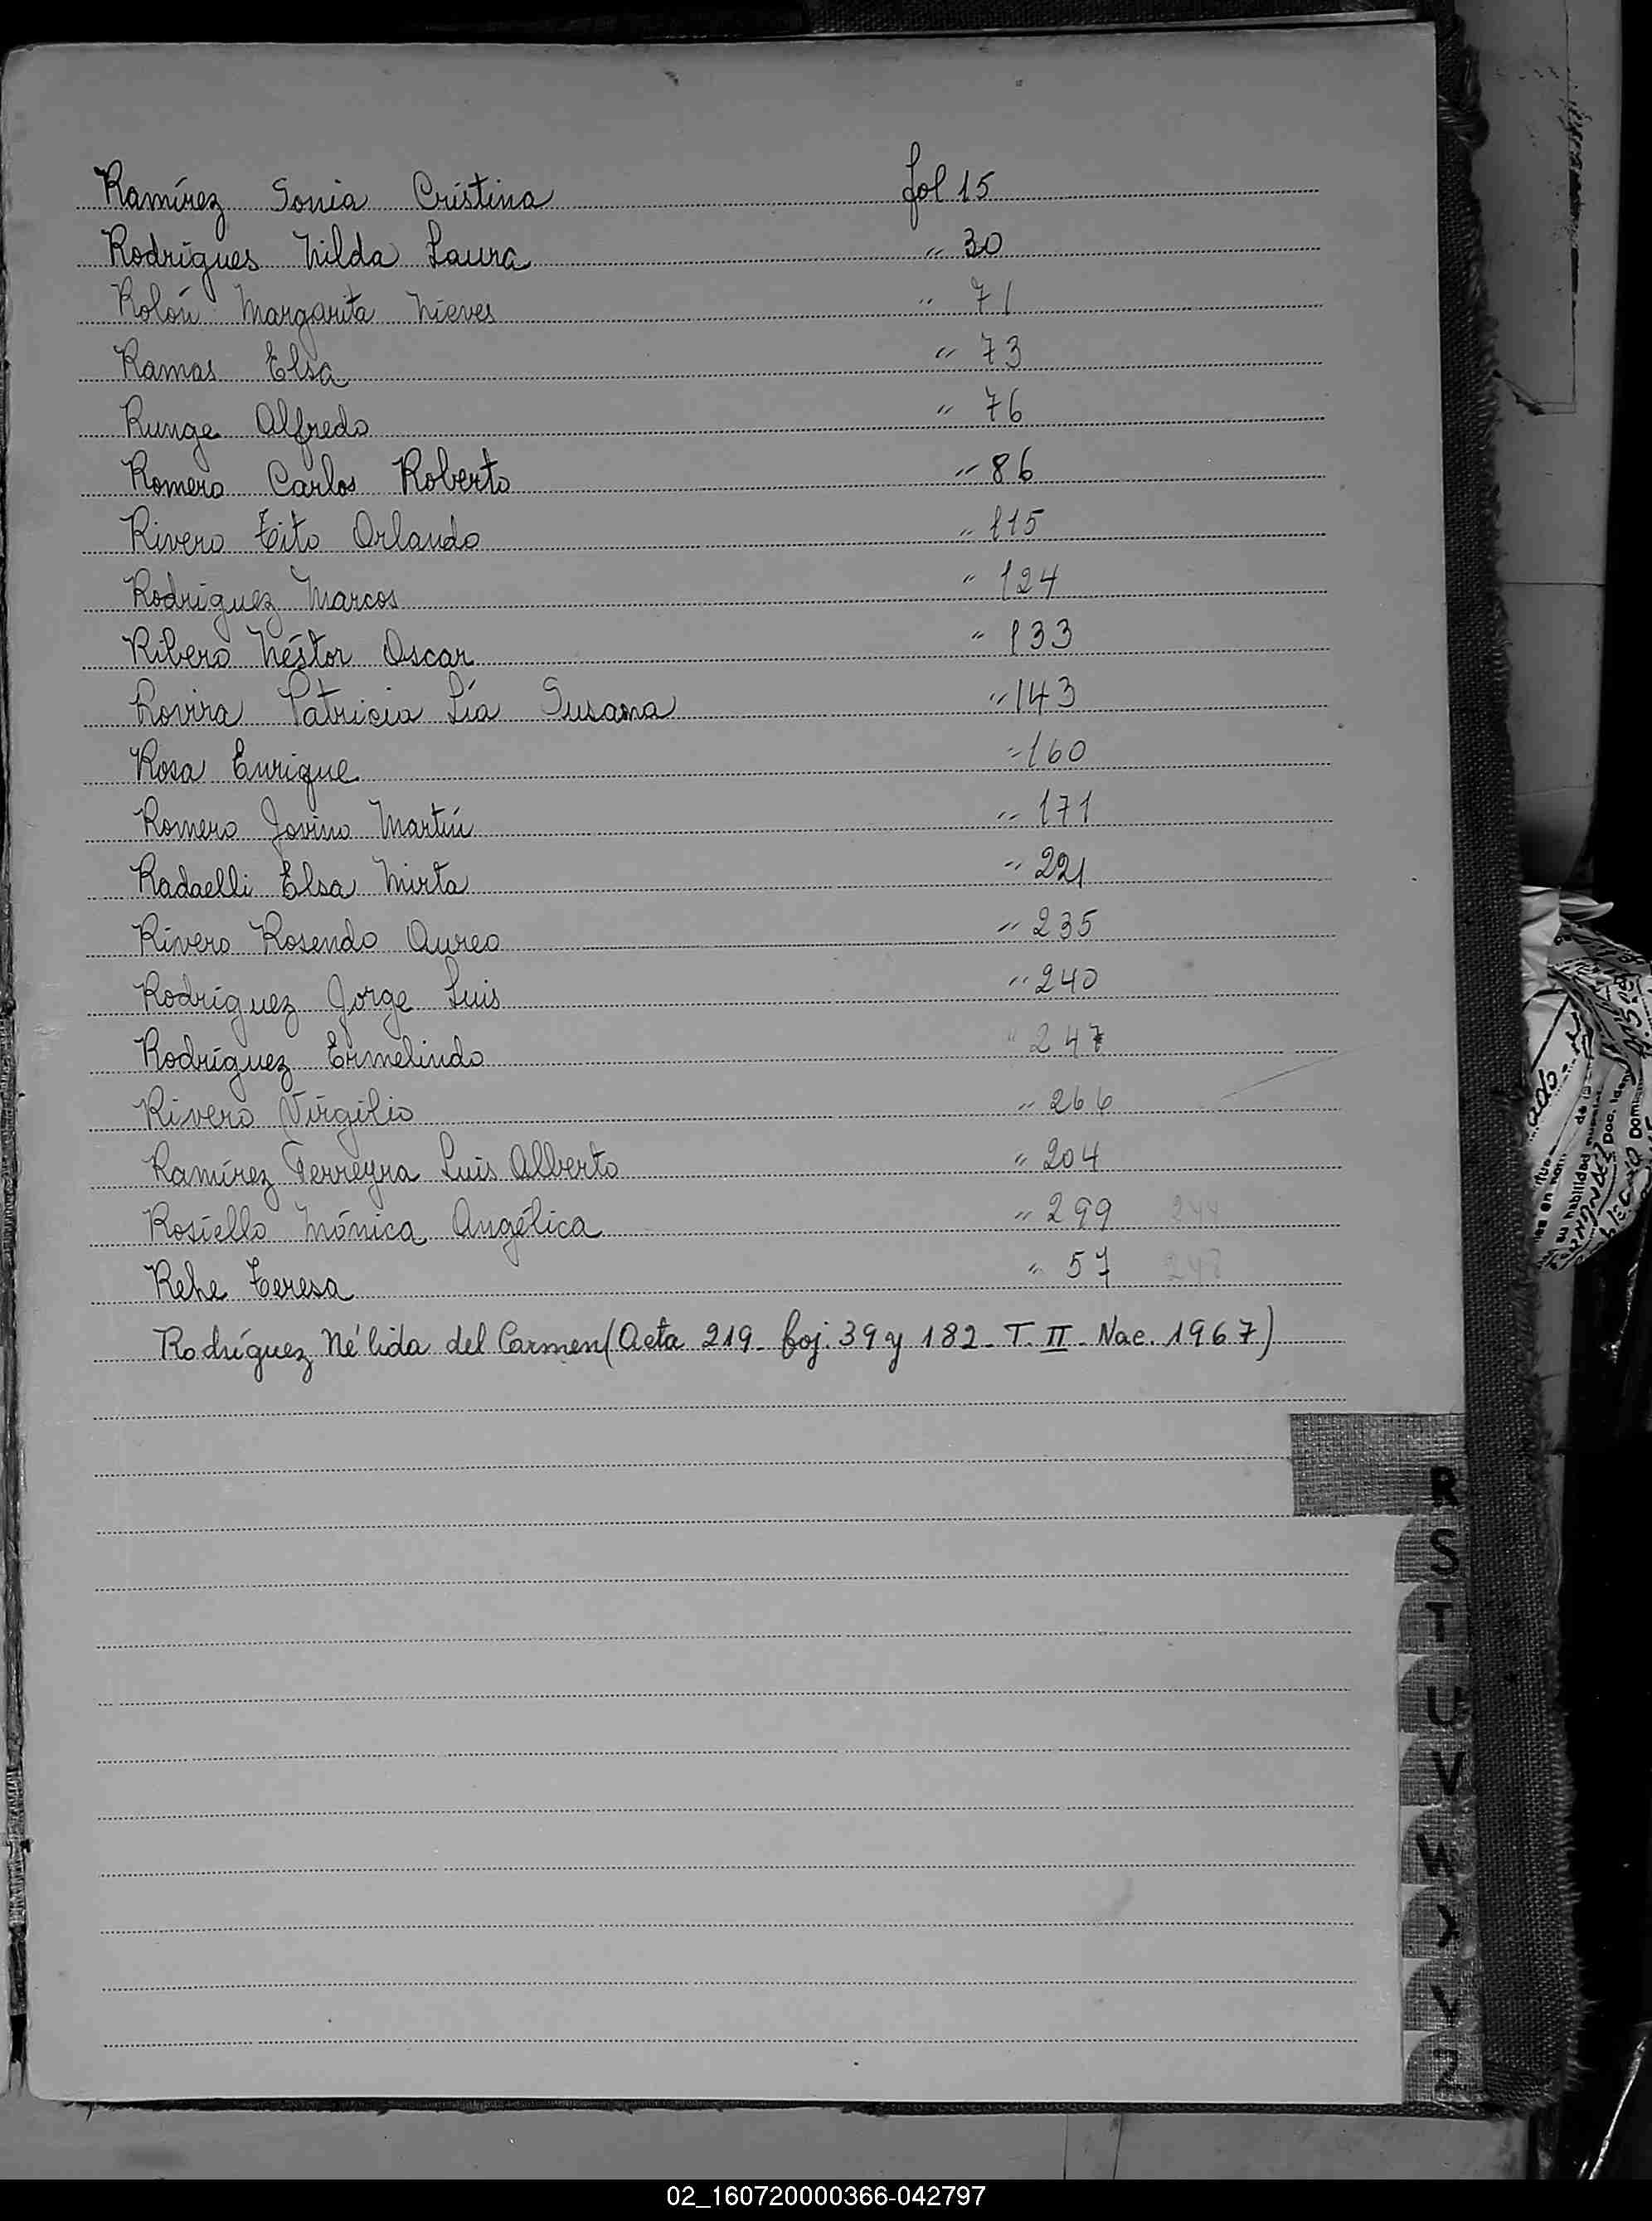 Ramírez Sonia Cristina fol 15
Rodrígues Nilda Laura " 30
Rolón Margarita Nieves " 71
Ramas Elsa " 73
Runge Alfredo " 76
Romero Carlos Roberto " 86
Rivero Tito Orlando " 115
Rodriguez Marcos " 124
Ribero Néstor Oscar " 133
Rovira Patricia Lía Susana " 143
Rosa Enrique " 160
Romero Jovino Martín " 171
Radaelli Elsa Mirta " 221
Rivero Rosendo Aureo " 235
Rodríguez Jorge Luis " 240
Rodríguez Ermelindo " 247
Rivero Virgilio " 266
Ramírez Ferreyra Luis Alberto " 204
Rosiello Mónica Angélica " 299 244
Rehe Teresa " 57 248
Rodríguez Nélida del Carmen (Acta 219- foj. 39 y 182- T. II - Nac. 1967)
R
S
T
U
V
W
X
Y
Z
02_160720000366-042797